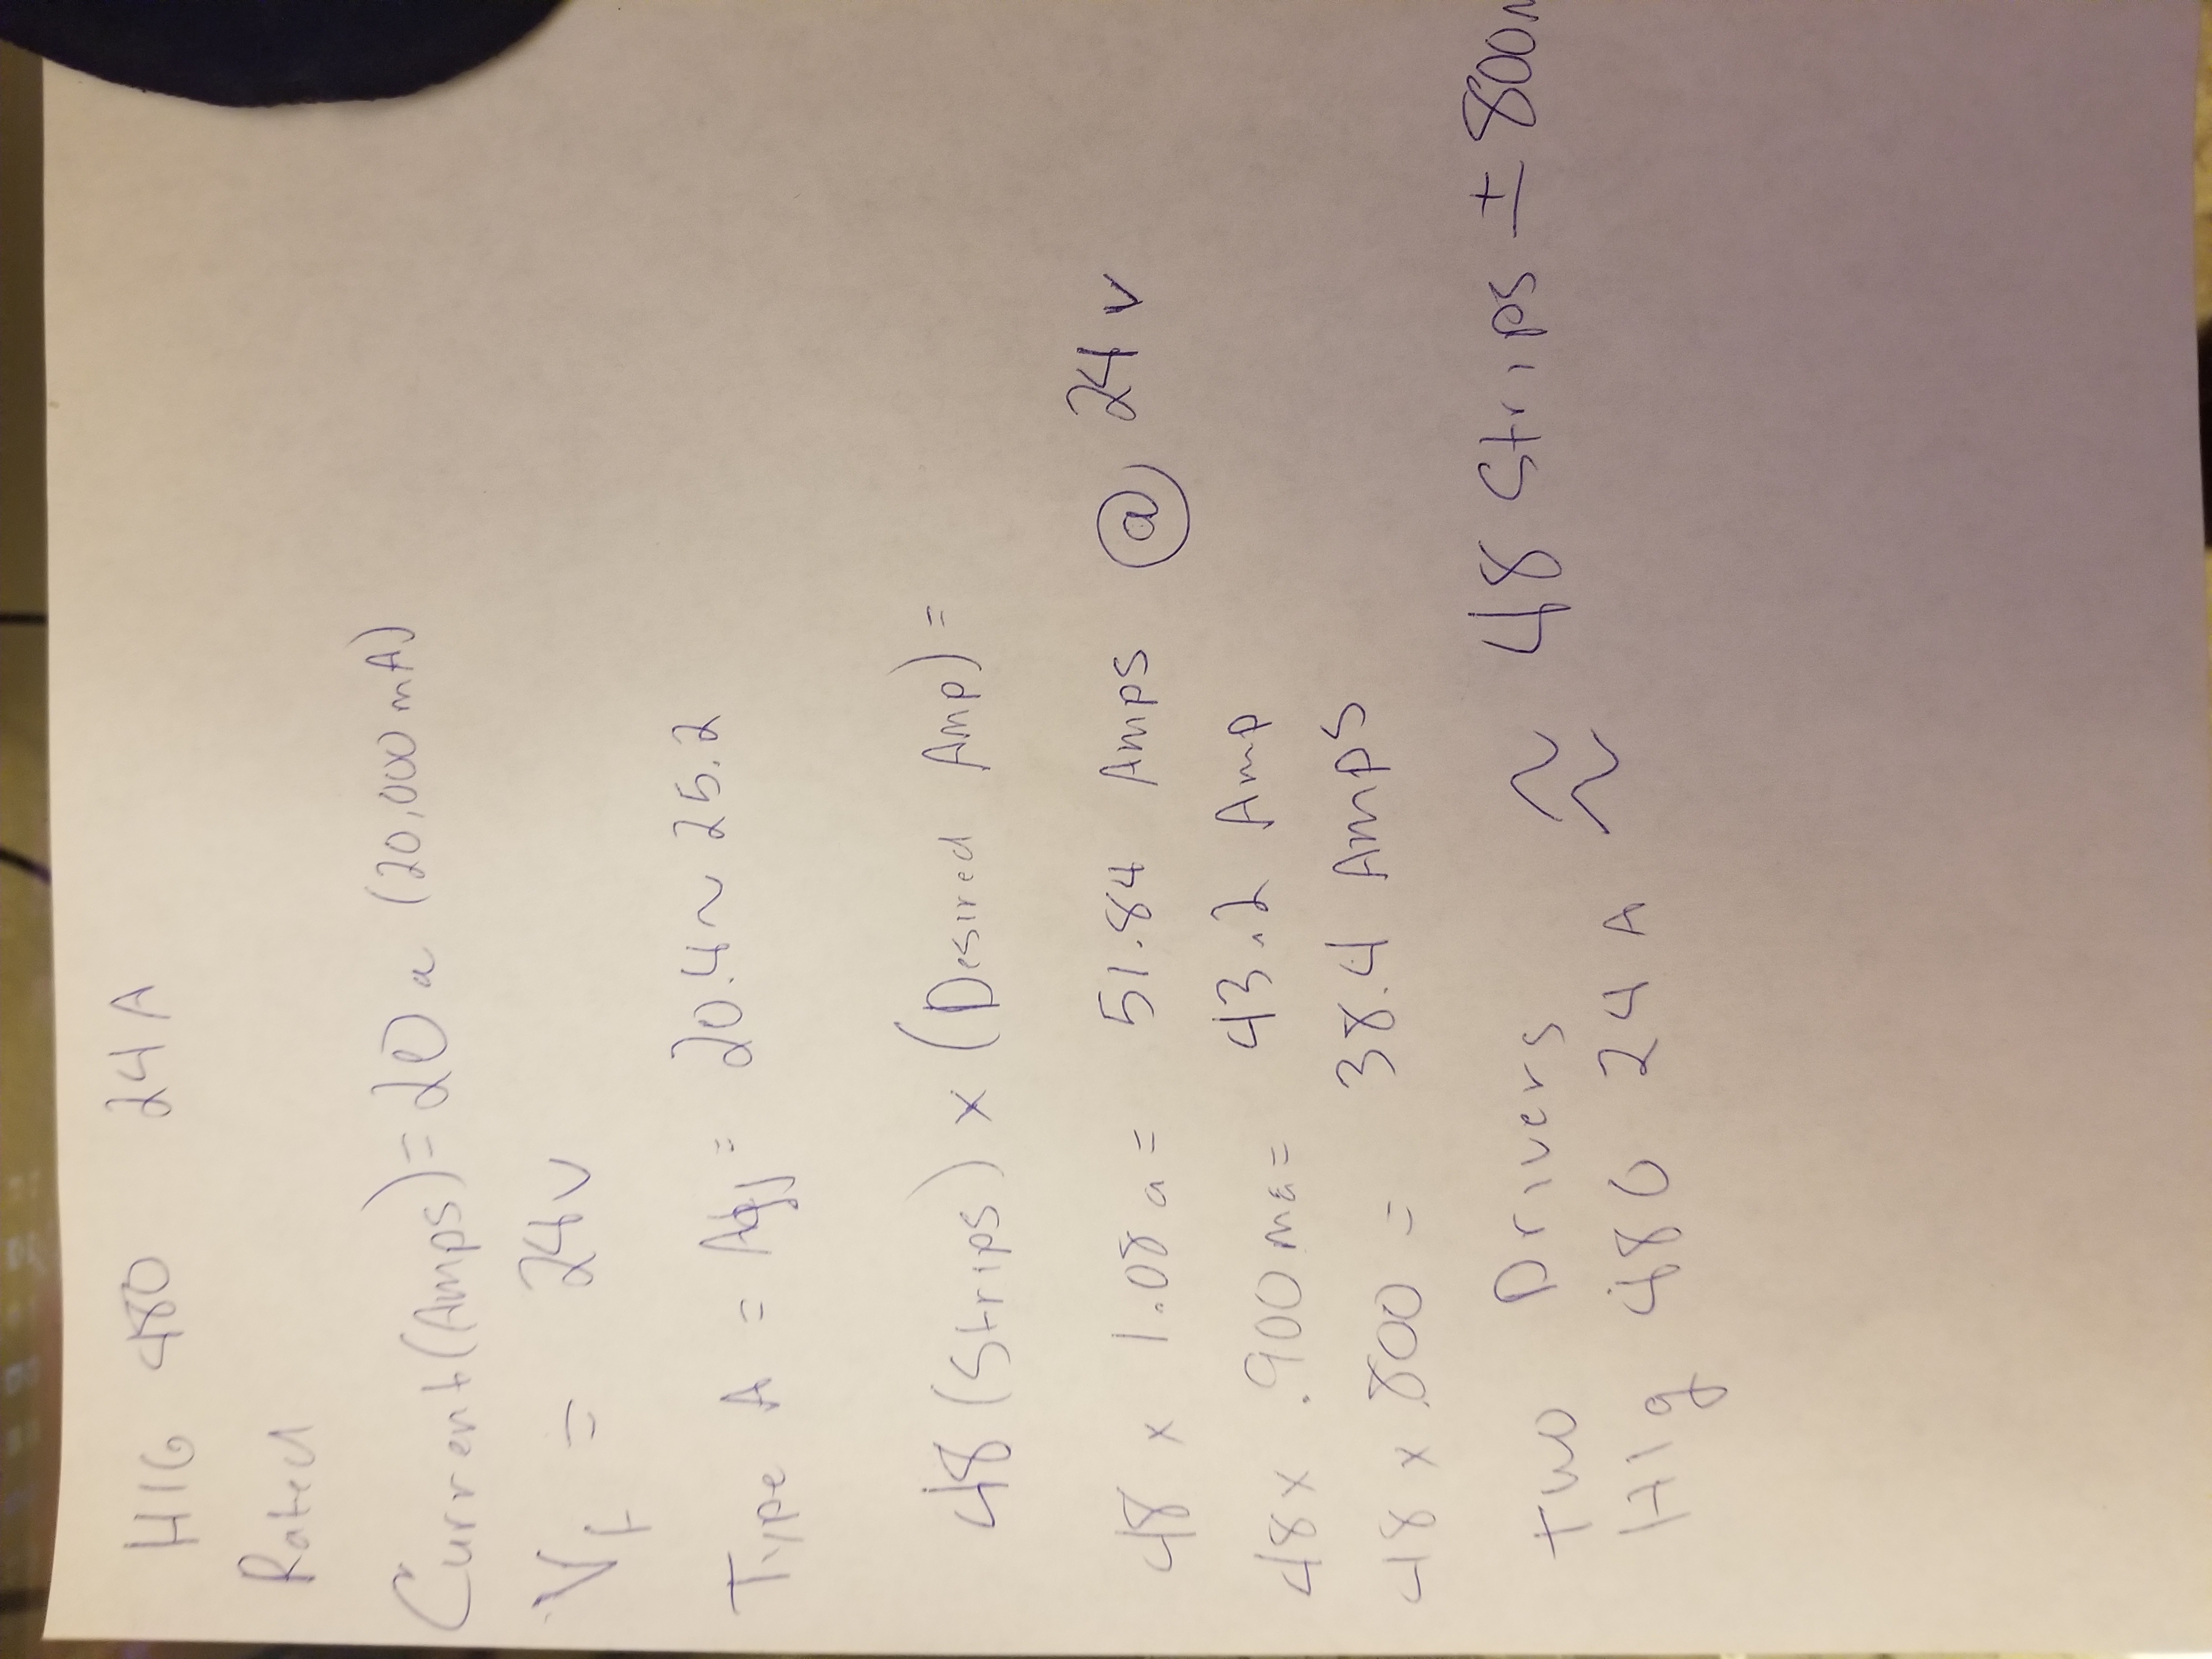 H16 480 24A
Rated
Current (Amps) = 20a (20,000mA)
Vf = 24V
Type A = Adj = 20.4~25.2
48 (Strips) x (Desired Amp) =
48 x 1.08a = 51.84 Amps @ 24v
48 x .900 ma = 43.2 Amp
48 x 800 = 38.4 Amps
Two Drivers ≈ 48 Strips ± 800m
Hlg 480 24A